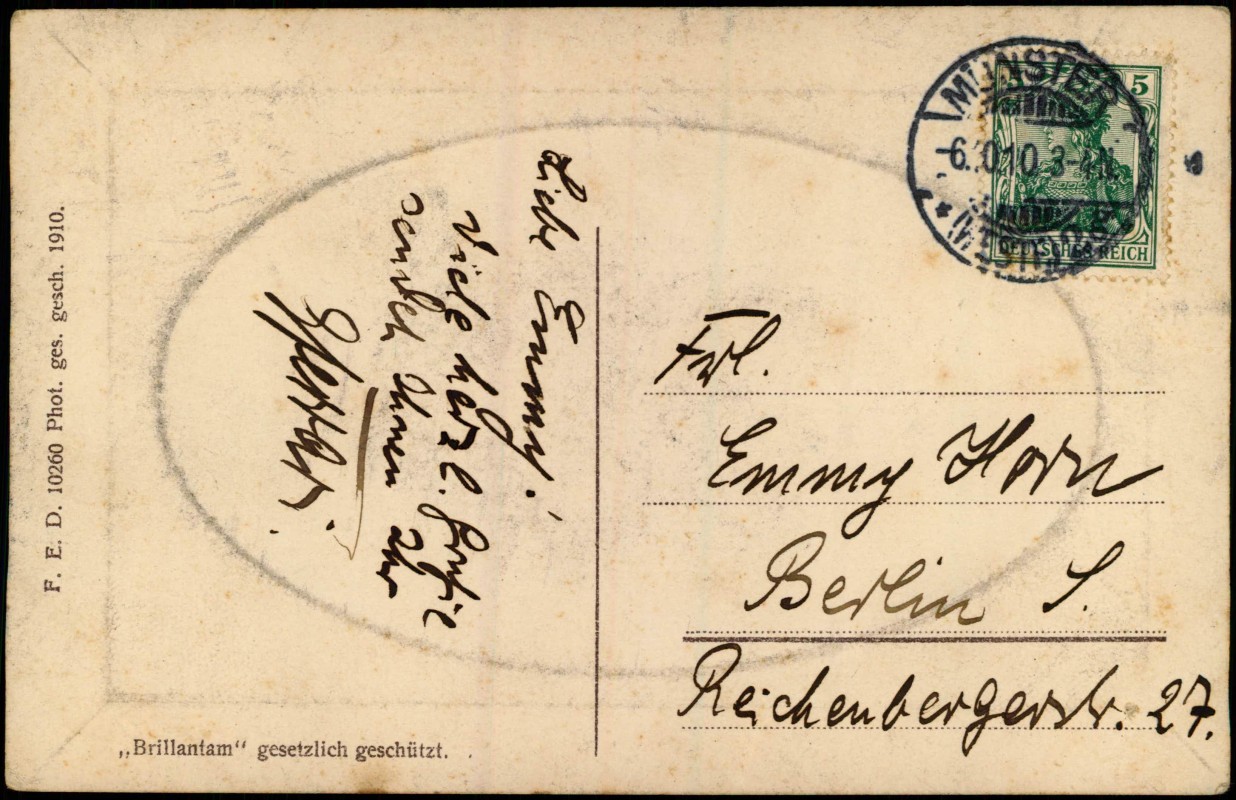 Liebe Emmy!
Viele herzl. Grüße
sendet Ihnen Ihr
MÜNSTER
-6.10.10. 3-4N.
* (WESTF.)
5
DEUTSCHES REICH
Frl.
Emmy Horn
Berlin S.
Reichenbergerstr. 27.
F. E. D. 10260 Phot. ges. gesch. 1910.
„Brillantam“ gesetzlich geschützt.